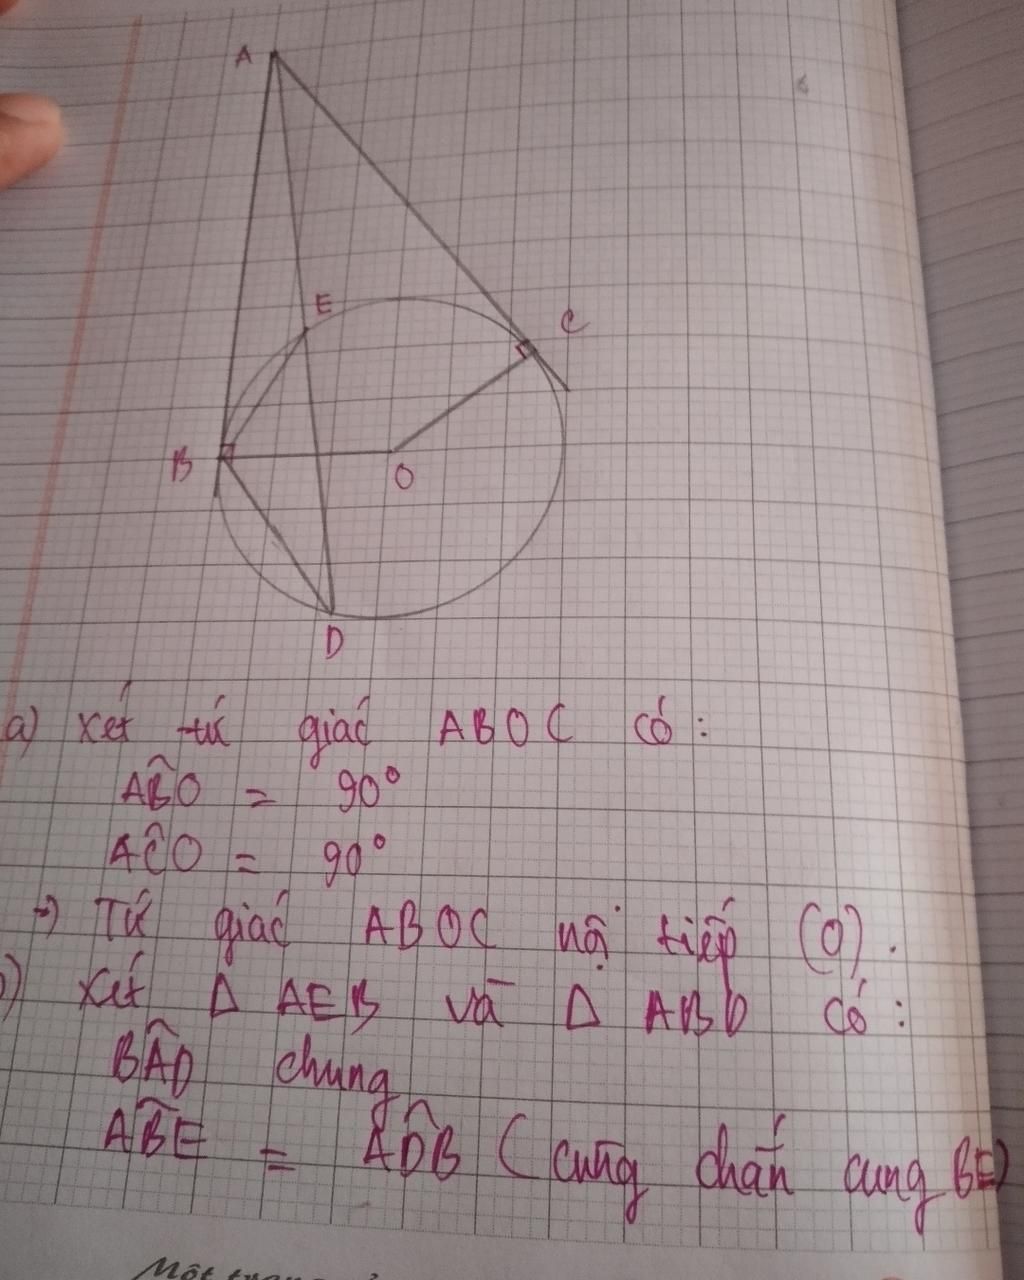 A
E
C
B
O
D
a) xét tứ giác ABOC có:
ABO = 90°
ACO = 90°
→) Tứ giác ABOC nội tiếp (O).
b) xét Δ AEB và Δ ABD có:
BAD chung
ABE = ADB (cùng chắn cung BE)